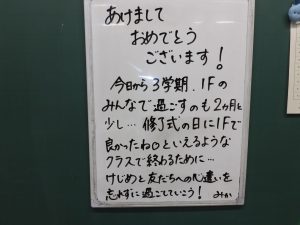 あけまして
おめでとう
ございます!
今日から3学期、1Fの
みんなで過ごすのも2ヵ月と
少し… 修了式の日に1Fで
良かったね。といえるような
クラスで終わるために…
けじめと友だちへの心遣いを
忘れずに過ごしていこう!
みか